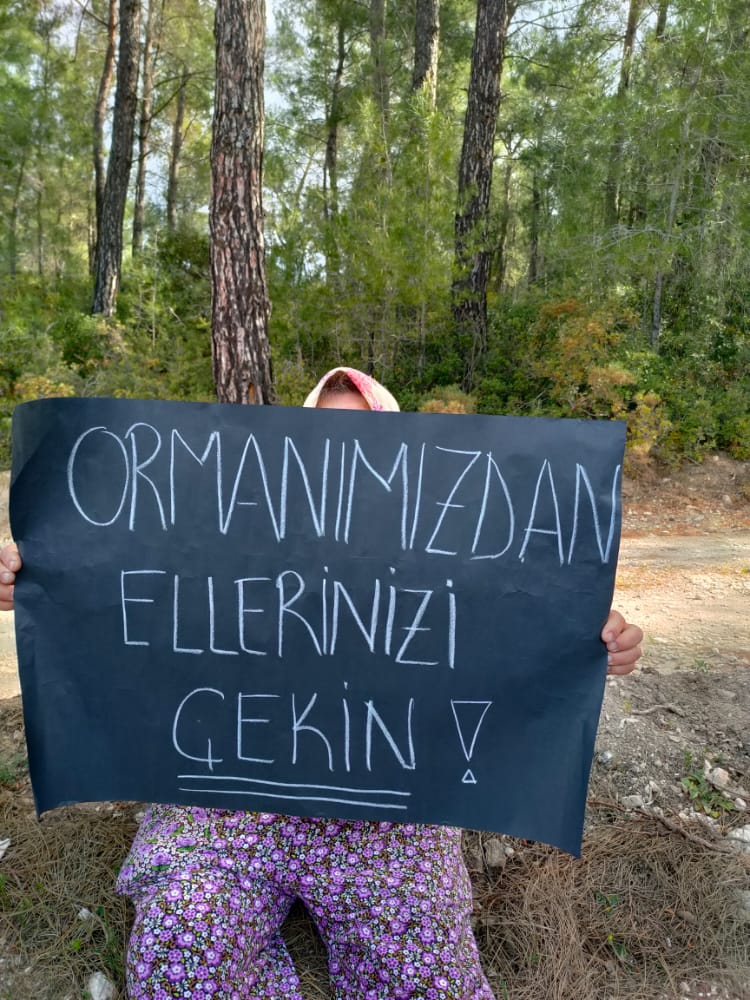 ORMANIMIZDAN
ELLERİNİZİ
ÇEKİN!